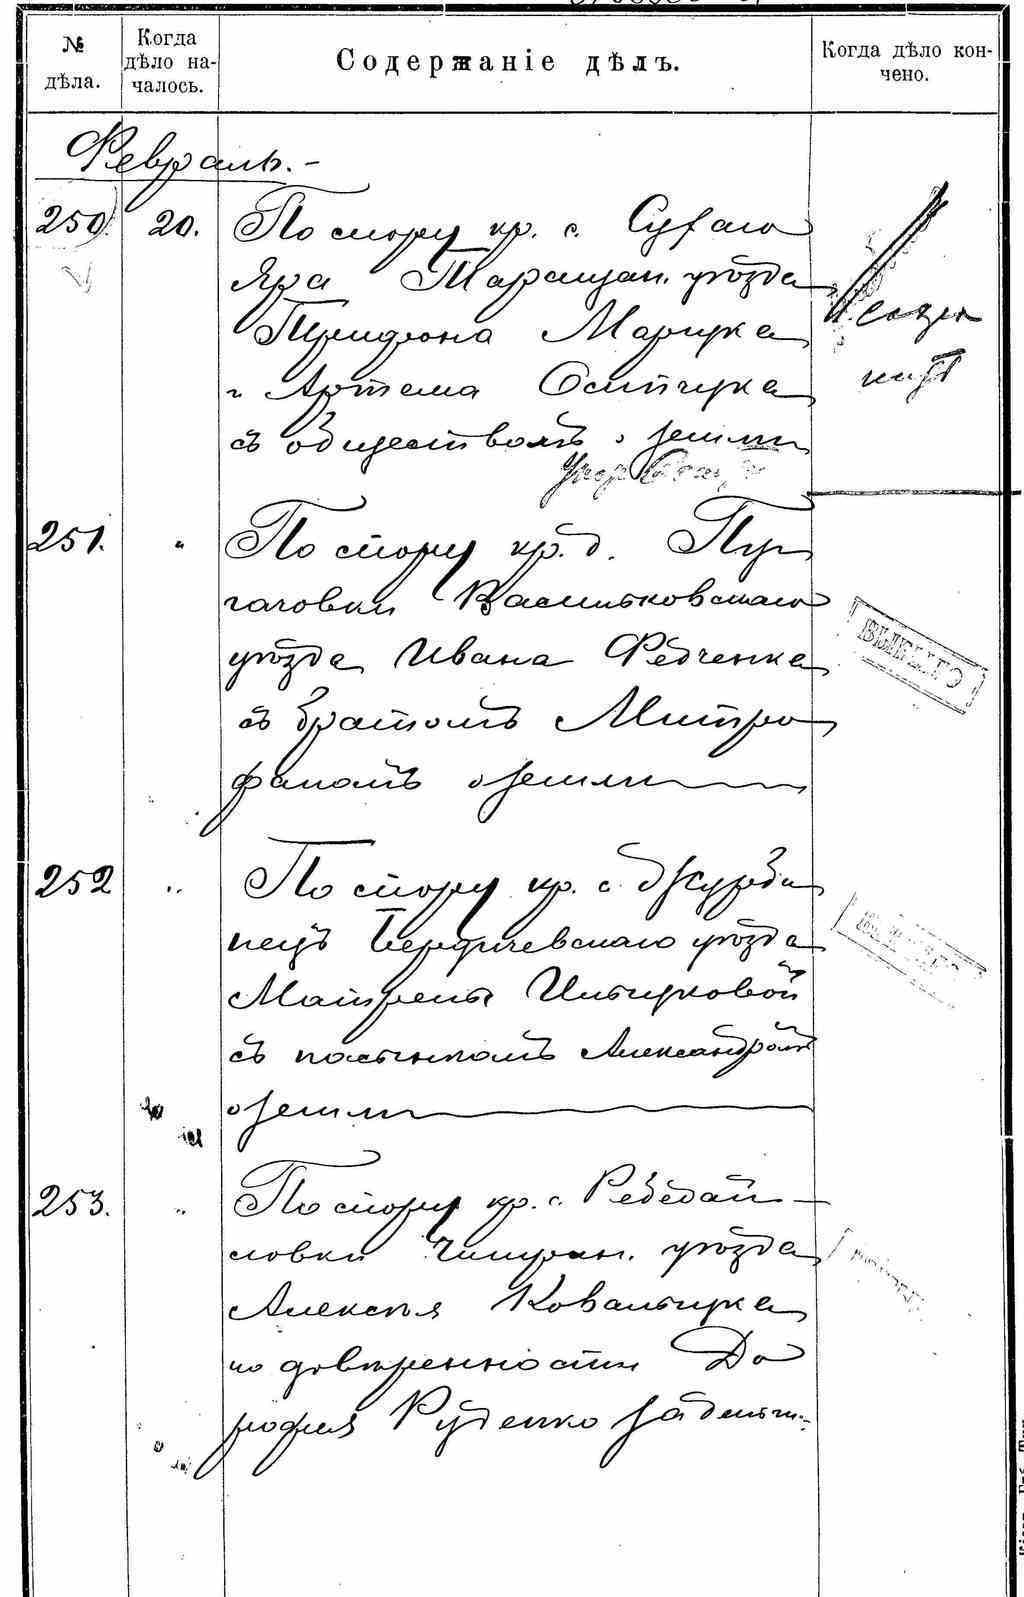 № дѣла.
Когда дѣло началось.
Содержаніе дѣлъ.
Когда дѣло кончено.
Февраль.-
250. 20. По спору кр. с. Сухаго
Яра Таращан. уѣзда
Марцука
и Артема Осипчука
съ обществомъ о земли
251. " По спору кр. д. Пу
гачовки Васильковскаго
уѣзда Ивана Федченка
съ братомъ Митро
фаномъ о земли
ВЫБЫЛО
252 " По спору кр. с. Журби
нецъ Бердичевскаго уѣзда
Матрены Ильчуковой
съ пасынкомъ Александромъ
о земли
253. " По спору кр. с. Ребедай-
ловки Чигирин. уѣзда
Алексѣя Ковальчука
по довѣренности До
рофея Руденко